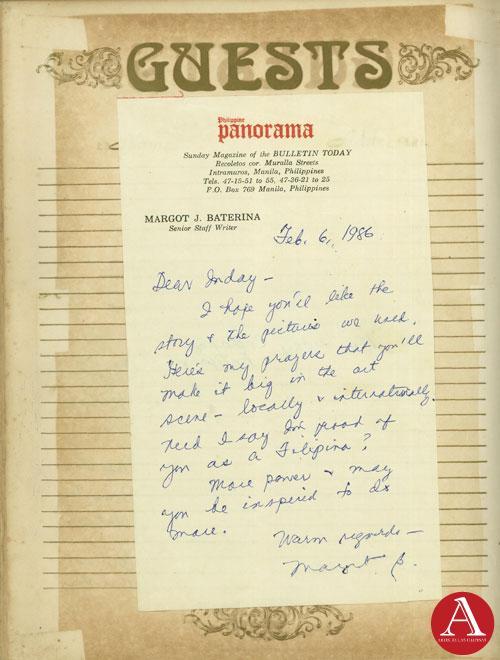 GUESTS
Philippine
panorama
Sunday Magazine of the BULLETIN TODAY
Recoletos cor. Muralla Streets
Intramuros, Manila, Philippines
Tels. 47-15-51 to 55, 47-36-21 to 25
P.O. Box 769 Manila, Philippines
MARGOT J. BATERINA
Senior Staff Writer
Feb. 6, 1986
Dear Inday –
I hope you'll like the
story & the pictures we used.
Here's my prayers that you'll
make it big in the art
scene – locally & internationally.
Need I say I'm proud of
you as a Filipina?
More power & may
you be inspired to do
more.
Warm regards –
Margot B.
A